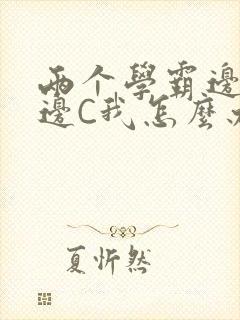 兩个學霸邊
邊C我怎麼
夏忻然